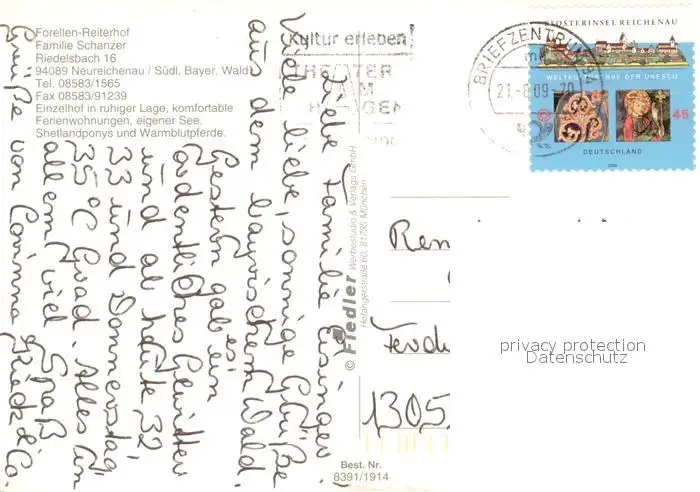 Forellen-Reiterhof
Familie Schanzer
Riedelsbach 16
94089 Neureichenau / Südl. Bayer. Wald
Tel. 08583/1565
Fax 08583/91239
Einzelhof in ruhiger Lage, komfortable
Ferienwohnungen, eigener See.
Shetlandponys und Warmblutpferde.
Kultur erleben
THEATER
AM
BRIEFZENTRUM
21.-8.09-20
KLOSTERINSEL REICHENAU
WELTKULTURERBE DER UNESCO
45
DEUTSCHLAND
2008
Liebe Familie
Viele liebe, sonnige Grüße
aus dem bayrischen Wald.
Gestern gab es ein
ordentliches Gewitter
und ab heute 32,
33 und Donnerstag
35 °C Grad. Alles in
allem viel Spaß
Grüße von Corinna & Co.
© Fiedler Werbestudio & Verlags GmbH
Hofangerstraße 60, 81735 München
Ren
1305
Best. Nr.
8391/1914
privacy protection
Datenschutz